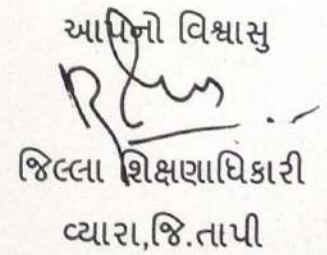 આપનો વિશ્વાસુ
જિલ્લા શિક્ષણાધિકારી
વ્યારા,જિ.તાપી